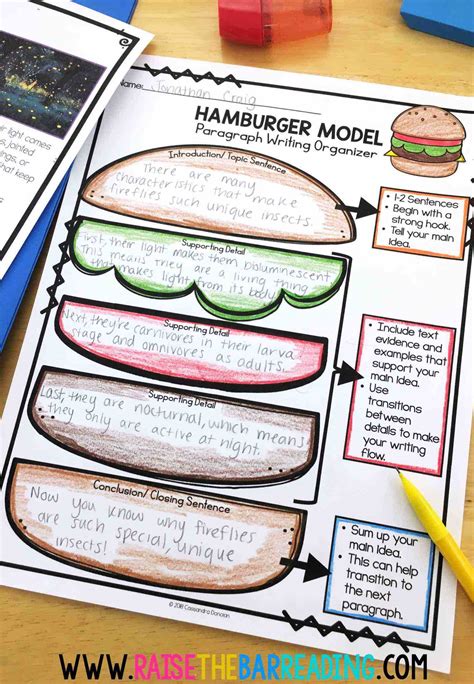 their light comes
, jointed
ings, or
s that keep
Name: Jonathan Craig
HAMBURGER MODEL
Paragraph Writing Organizer
Introduction/Topic Sentence
There are many
characteristics that make
fireflies such unique insects.
1-2 Sentences
Begin with a
strong hook.
Tell your main
idea.
Supporting Detail
First, their light makes them bioluminescent
this means they are a living thing
that makes light from its body.
Supporting Detail
Next, they're carnivores in their larva
stage and omnivores as adults.
Include text
evidence and
examples that
support your
main idea.
Use
transitions
between
details to make
your writing
flow.
Supporting Detail
Last, they are nocturnal, which means
they only are active at night.
Conclusion/Closing Sentence
Now you know why fireflies
are such special, unique
insects!
Sum up your
main idea.
This can help
transition to
the next
paragraph.
© 2018 Cassandra
WWW.RAISETHEBARREADING.COM